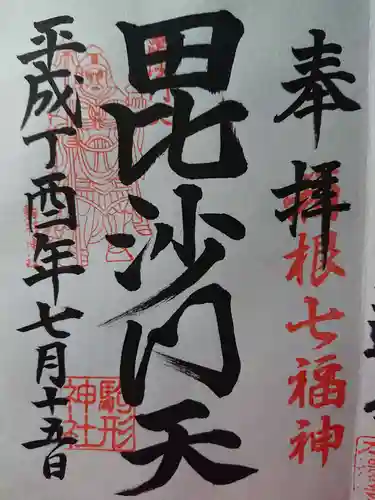 奉拝
箱根七福神
毘沙門天
平成丁酉年七月十五日
駒形
神社